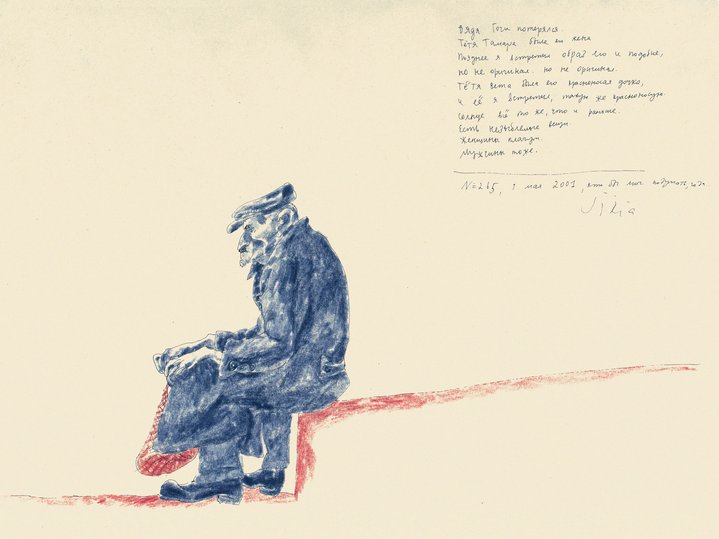 Дядя Гоги потерялся
Тётя Тамара была его жена
Позднее я встретил образ его и подобие,
но не оригинал. но не оригинал.
Тётя Вета была его красноносая дочка,
и её я встретил, такую же красноносую.
Солнце всё то же, что и раньше.
Есть незыблемые вещи.
Женщины плачут.
Мужчины тоже.
N=265, 1 мая 2001, кто бы мог подумать,